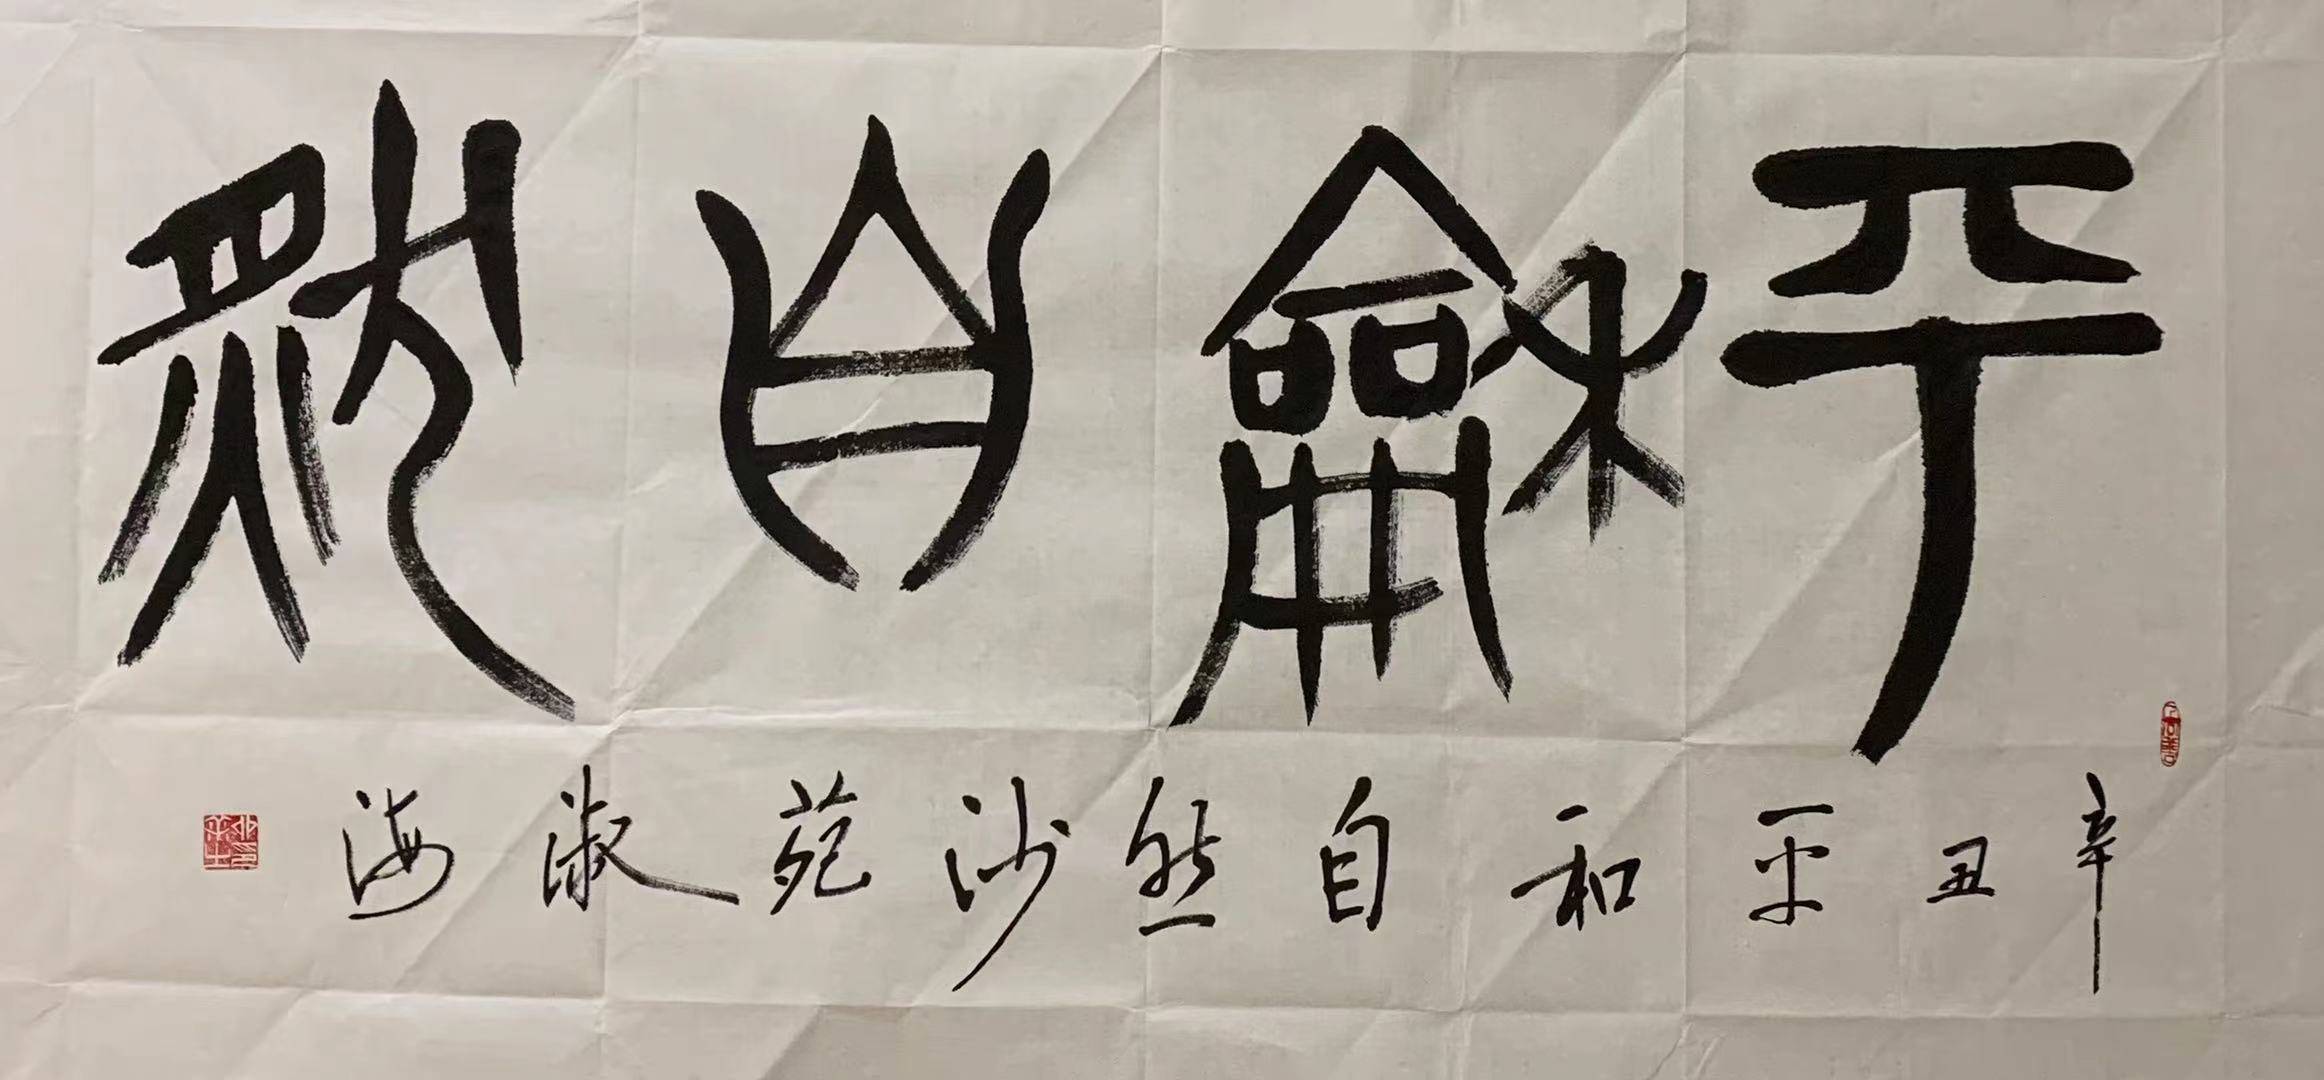 平龢自然
辛丑平和自然沙苑淑海